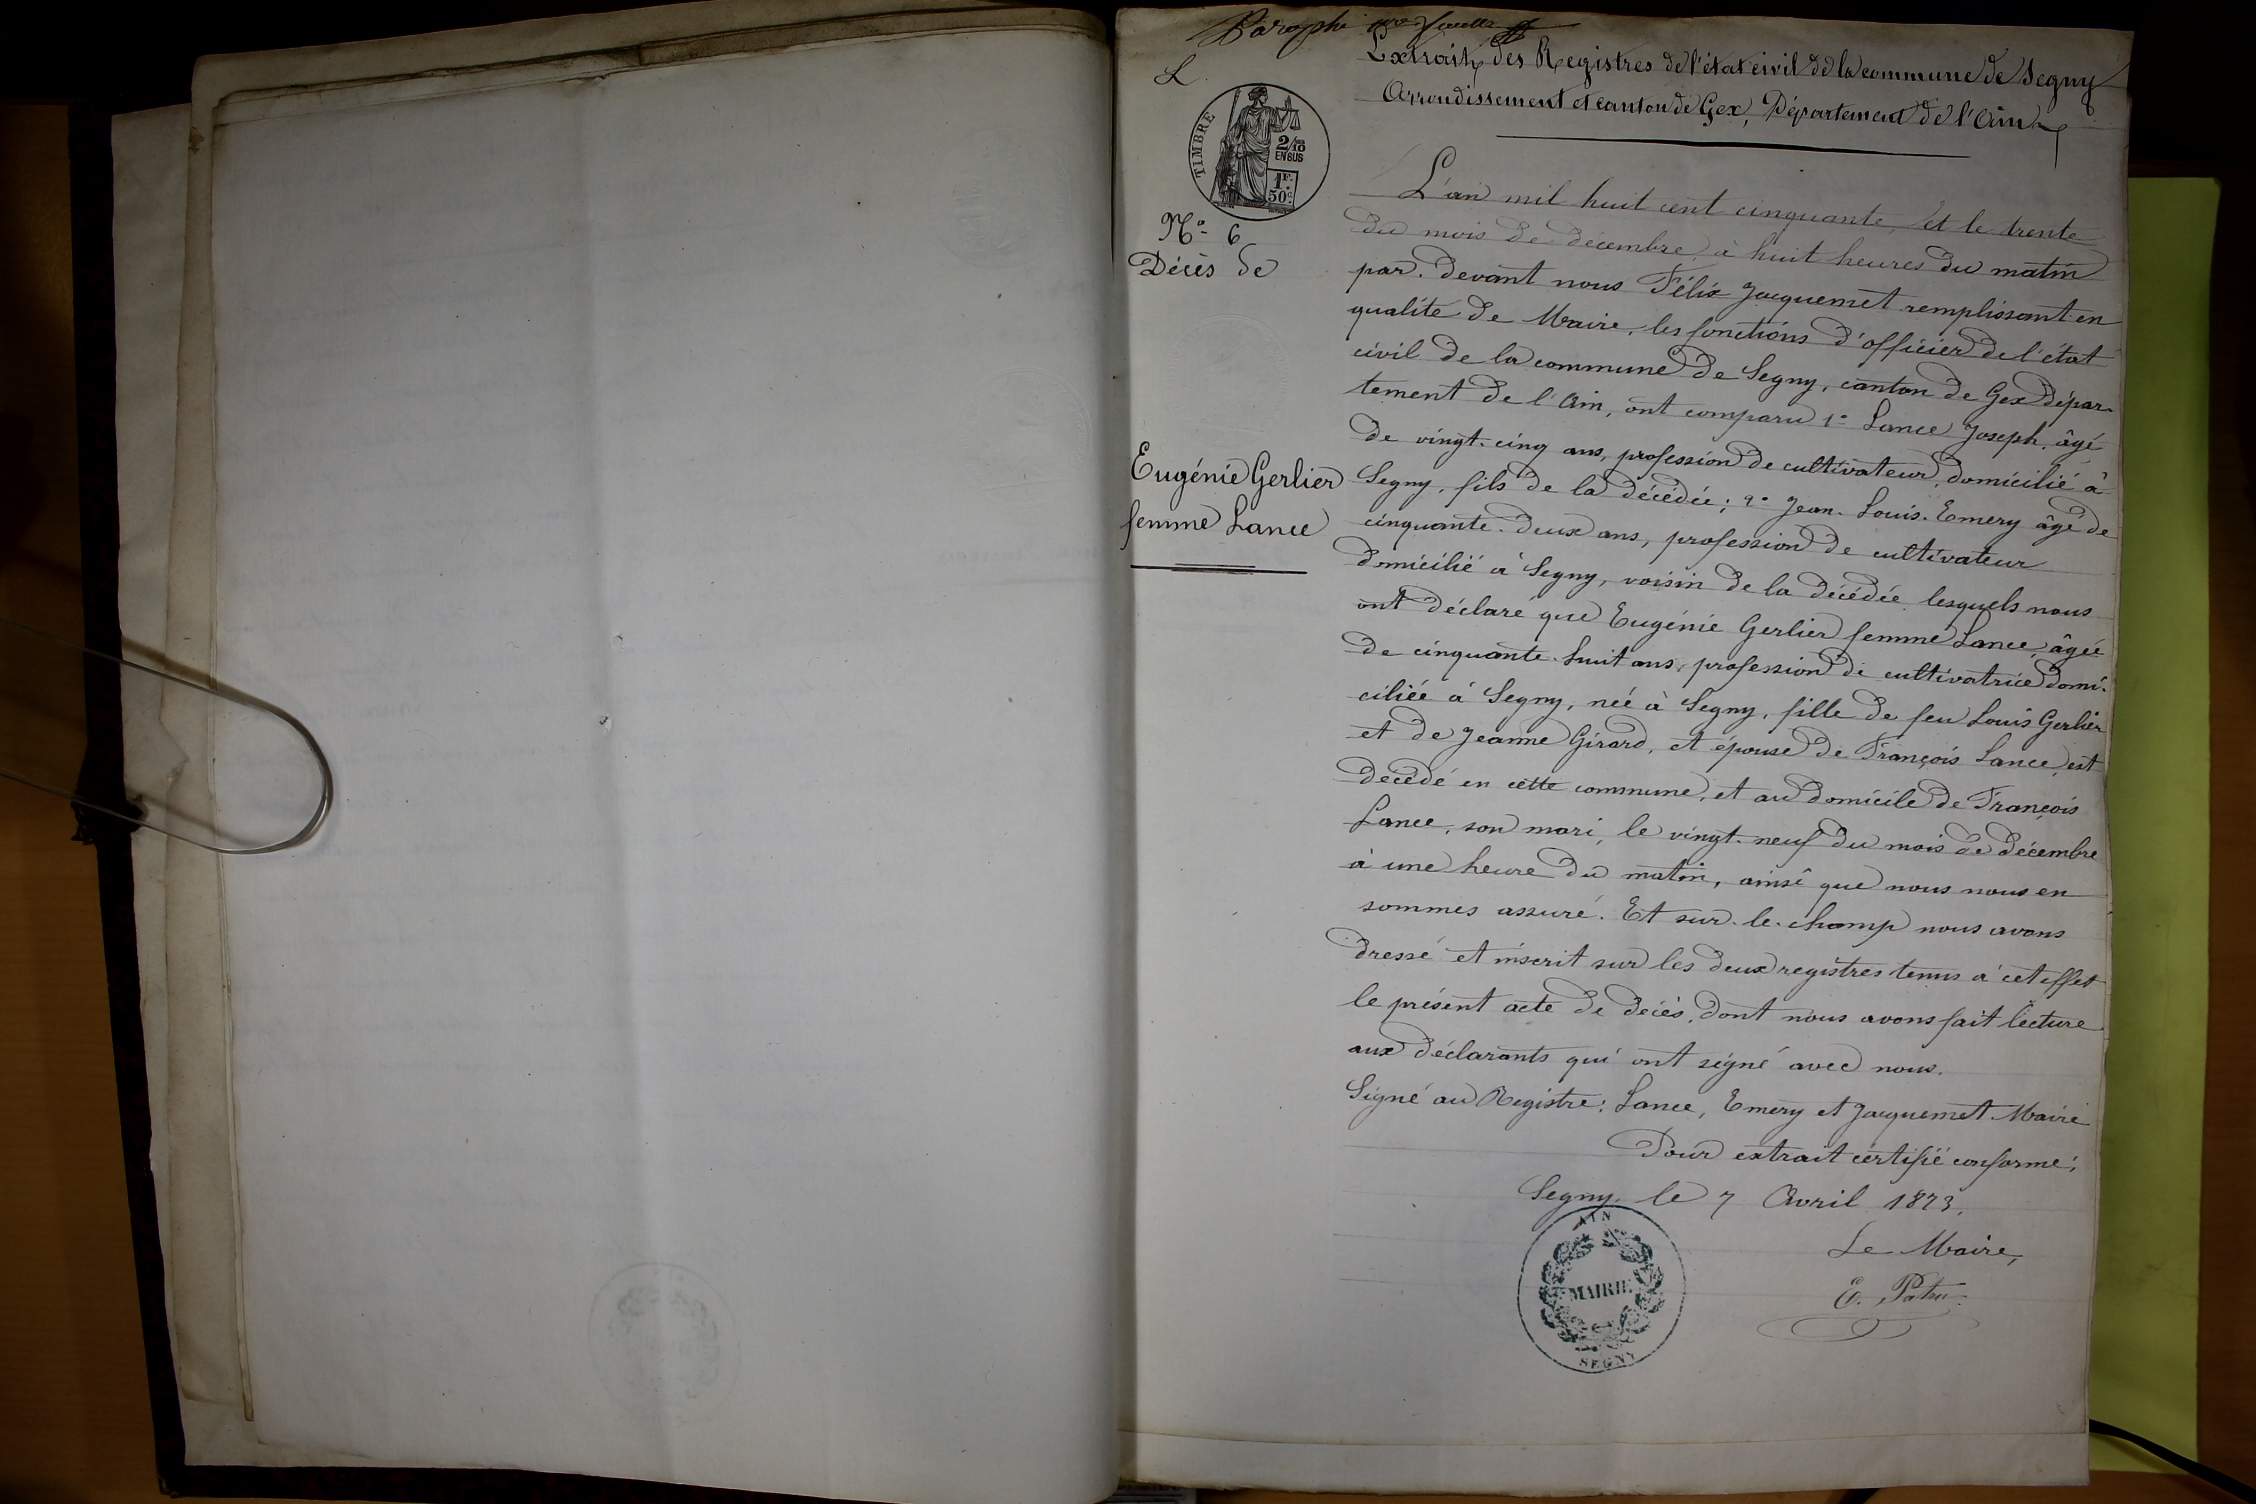 Paraphé
L
Extrait des Registres de l'état civil de la commune de Segny
Arrondissement et canton de Gex, Département de l'Ain
TIMBRE
2/10
EN SUS
1F.
50c.
No. 6
Décès de
Eugénie Gerlier
femme Lance
L'an mil huit cent cinquante, et le trente
du mois de décembre, à huit heures du matin
par. devant nous Félix Jacquemet remplissant en
qualité de Maire, les fonctions d'officier de l'état
civil de la commune de Segny, canton de Gex dépar-
tement de l'Ain, ont comparu 1° Lance Joseph, âgé
de vingt-cinq ans, profession de cultivateur, domicilié à
Segny, fils de la décédée; 2° Jean-Louis Emery âgé de
cinquante-deux ans, profession de cultivateur
domicilié à Segny, voisin de la décédée lesquels nous
ont déclaré que Eugénie Gerlier femme Lance, âgée
de cinquante-huit ans, profession de cultivatrice domi-
ciliée à Segny, née à Segny, fille de feu Louis Gerlier
et de Jeanne Girard, et épouse de François Lance, est
décédé en cette commune, et au domicile de François
Lance, son mari, le vingt-neuf du mois de décembre
à une heure du matin, ainsi que nous nous en
sommes assuré. Et sur-le-champ nous avons
dressé et inscrit sur les deux registres tenus à cet effet
le présent acte de décès, dont nous avons fait lecture
aux déclarants qui ont signé avec nous.
Signé au Registre: Lance, Emery et Jacquemet Maire
Pour extrait certifié conforme:
Segny, le 7 Avril 1873.
Le Maire,
E. Patru
AIN
MAIRIE
SEGNY